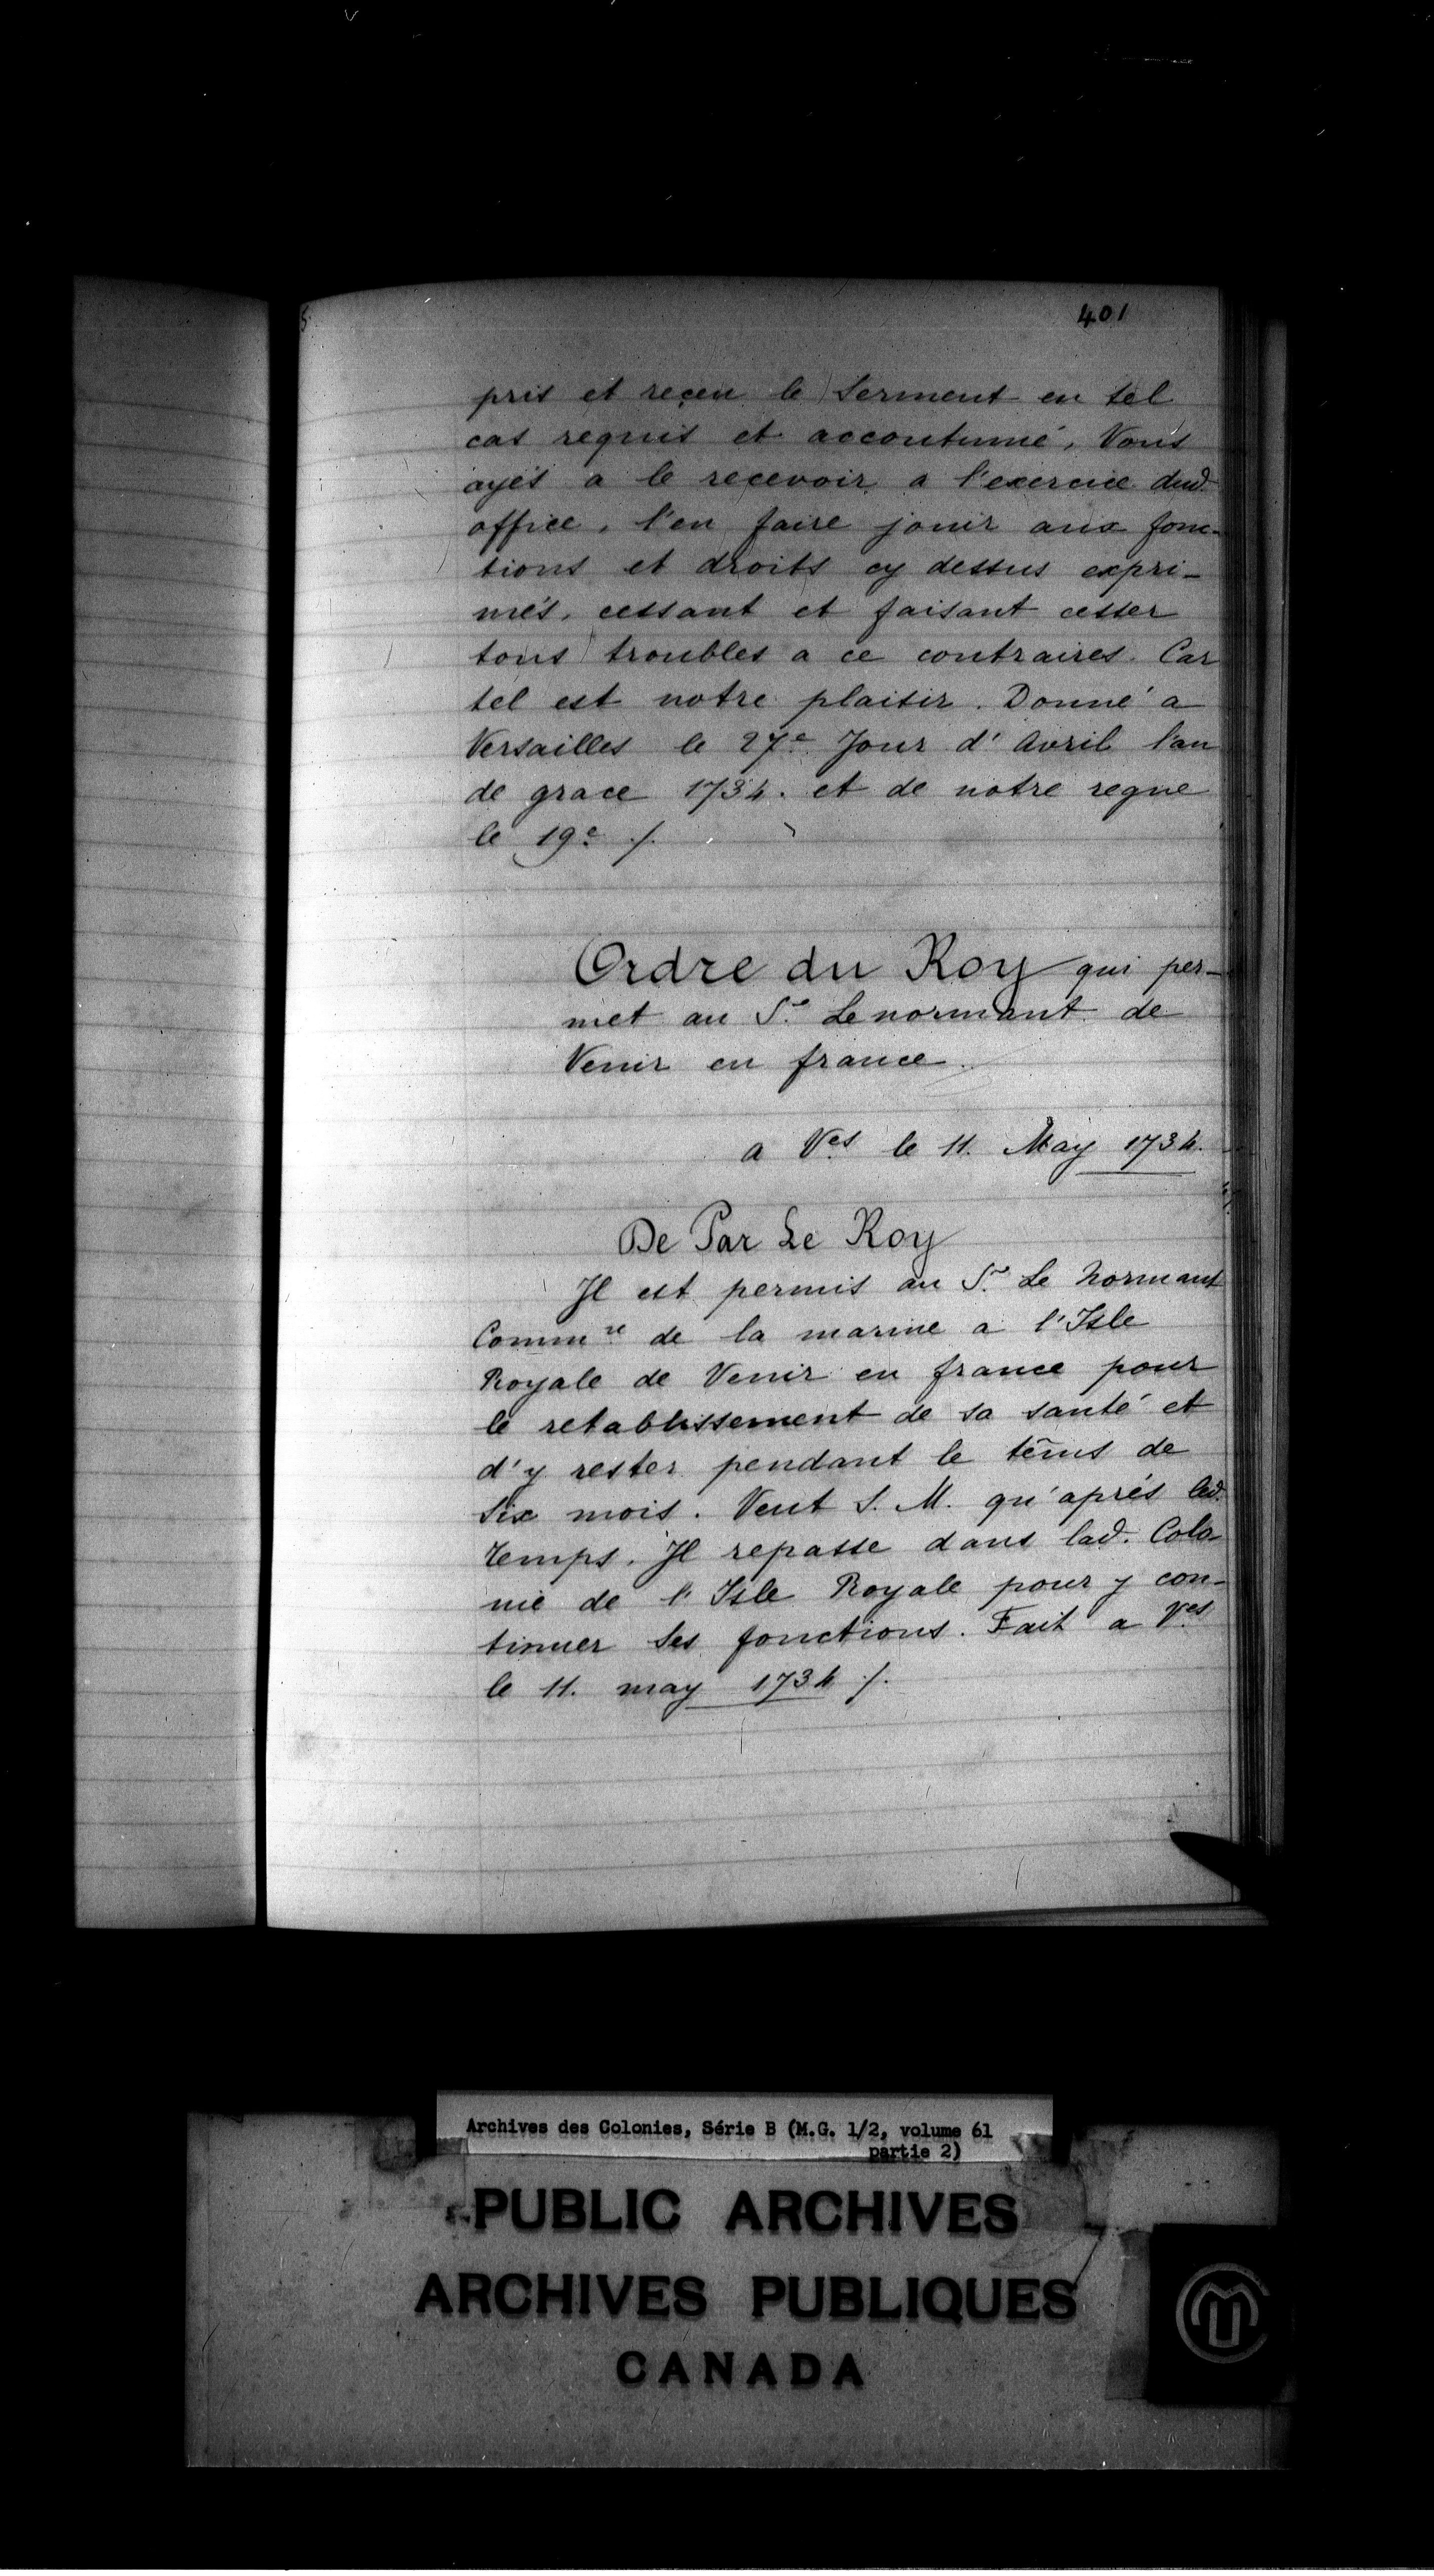 401
pris et reçeu le Serment en tel
cas requis et accoutumé, Vous
ayés a le recevoir a l'exercice dud.
office, l'en faire jouir aux fonc-
tions et droits cy dessus expri-
més, cessant et faisant cesser
tous troubles a ce contraires. Car
tel est notre plaisir. Donné a
Versailles le 27e Jour d'Avril l'an
de grace 1734. et de notre regne
le 19e ./.
Ordre du Roy qui per-
met au Sr. Lenormant de
Venir en france.
a Ves le 11. May 1734.
De Par Le Roy
Il est permis au Sr. Le Normant
Commre de la marine a l'Isle
Royale de Venir en france pour
le retablissement de sa santé et
d'y rester pendant le tẽms de
Six mois. Veut S. M. qu'aprés led.
temps, Il repasse dans lad. Colo-
nie de l'Isle Royale pour y con-
tinuer Ses fonctions. Fait a Ves
le 11. may 1734 ./.
Archives des Colonies, Série B (M.G. 1/2, volume 61
partie 2)
PUBLIC ARCHIVES
ARCHIVES PUBLIQUES
CANADA